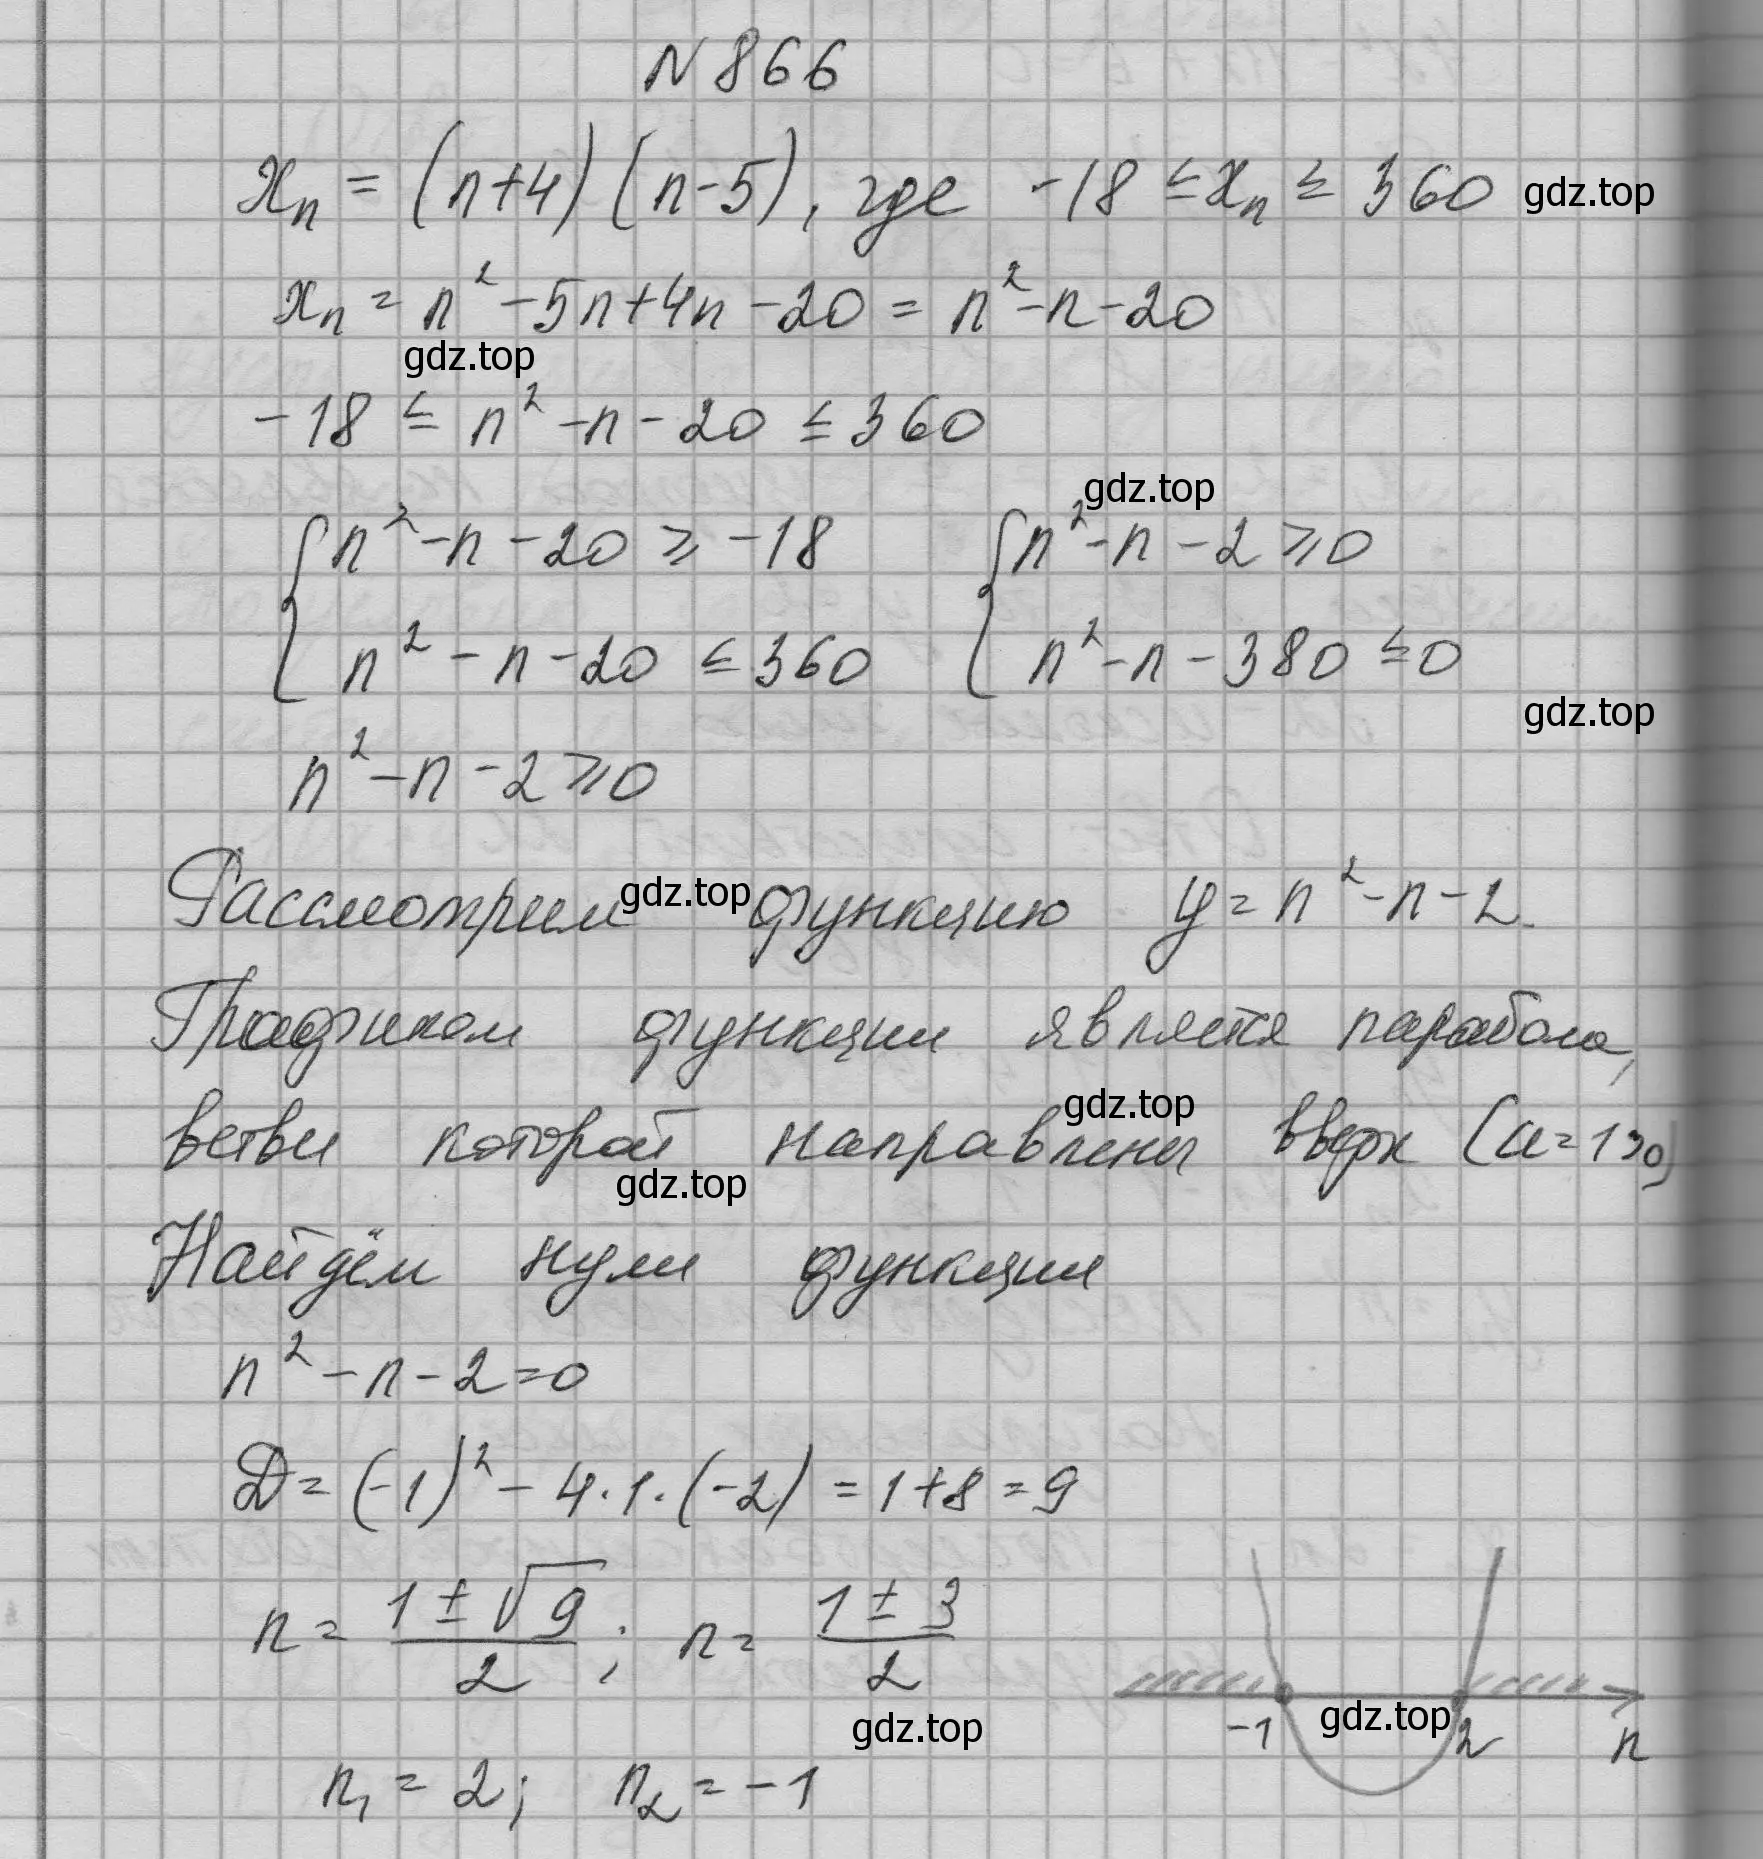 N 866
xₙ = (n+4)(n-5), где -18 ≤ xₙ ≤ 360 gdz.top
xₙ = n² - 5n + 4n - 20 = n² - n - 20
gdz.top
-18 ≤ n² - n - 20 ≤ 360
gdz.top
{ n² - n - 20 ≥ -18 { n² - n - 2 ≥ 0
n² - n - 20 ≤ 360 n² - n - 380 ≤ 0
gdz.top
n² - n - 2 ≥ 0
Рассмотрим gdz.top функцию y = n² - n - 2.
Графиком функции является парабола,
gdz.top
ветви которой направлены вверх (a = 1 > 0)
gdz.top
Найдём нули функции
n² - n - 2 = 0
D = (-1)² - 4·1·(-2) = 1 + 8 = 9
n = (1 ± √9)/2; n = (1 ± 3)/2
gdz.top
-1 gdz.top 2 n
n₁ = 2; n₂ = -1